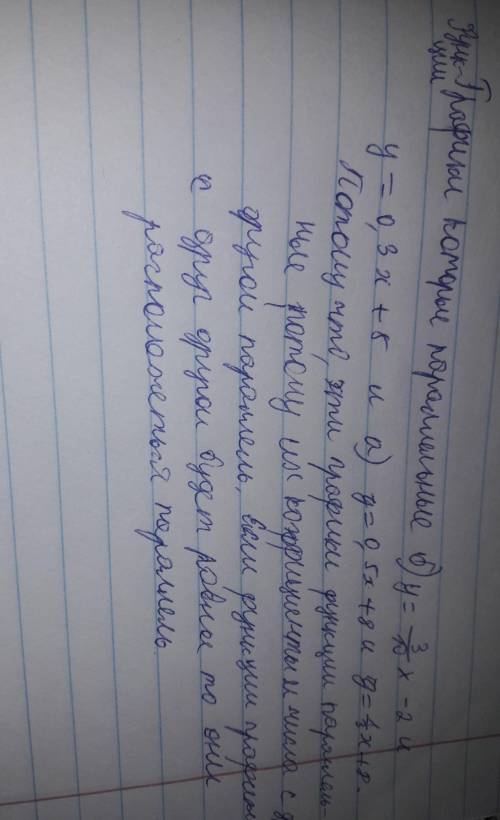 Функ- Графики которые параллельные б) y = 3/10 x - 2 и
ции
y = 0,3x + 5 и а) y = 0,5x + 8 и y = ½x + 8.
Потому что, эти графики функции паралель-
ные потому их коэффициенты и числа с д
другом паралель, Если функции графики
с друг другом будет равны то они
расположеный паралель